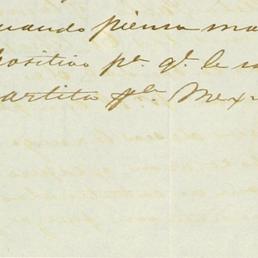 uando piensa ma
positivo pa. qe. le
artita pa. Mex